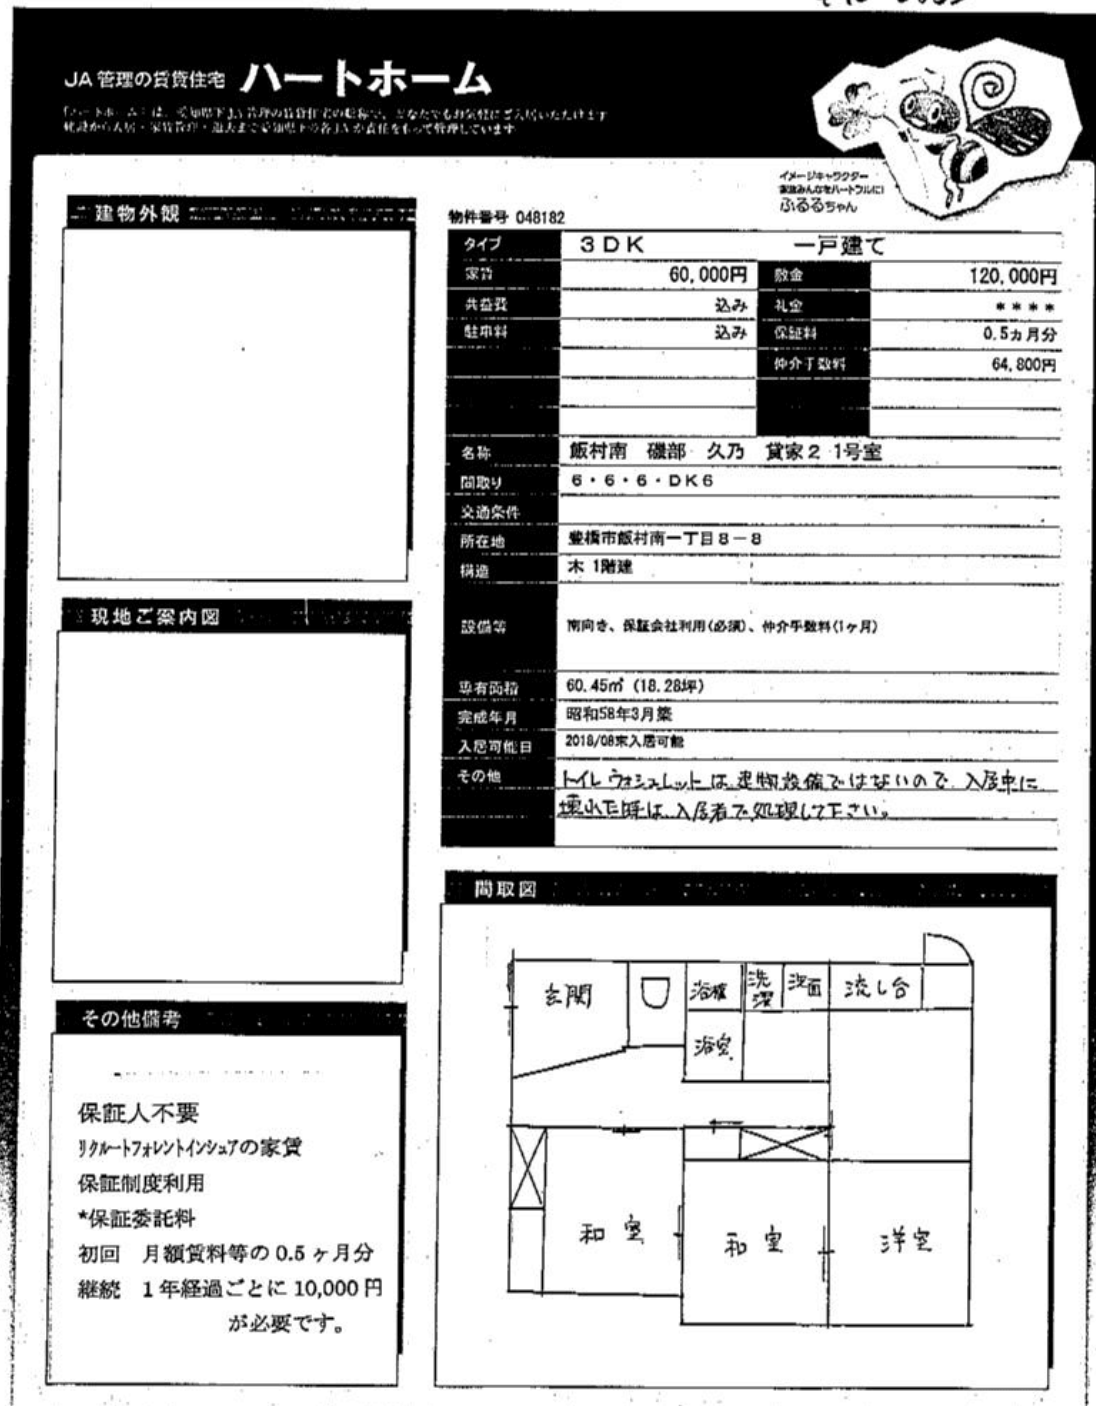 JA 管理の賃貸住宅 ハートホーム
「ハートホーム」は、愛知県下JA管理の賃貸住宅の総称で、どなたでもお気軽にご入居いただけます
建設から入居・家賃管理・退去まで愛知県下の各JAが責任をもって管理しています
イメージキャラクター
家族みんなをハートフルに!
ふるるちゃん
建物外観
現地ご案内図
その他備考
保証人不要
リクルートフォレントインシュアの家賃
保証制度利用
*保証委託料
初回 月額賃料等の 0.5 ヶ月分
継続 1 年経過ごとに 10,000 円
が必要です。
物件番号 048182
タイプ 3DK 一戸建て
家賃 60,000円 敷金 120,000円
共益費 込み 礼金 ****
駐車料 込み 保証料 0.5ヵ月分
仲介手数料 64,800円
名称 飯村南 磯部 久乃 貸家2 1号室
間取り 6・6・6・DK6
交通条件
所在地 豊橋市飯村南一丁目8-8
構造 木 1階建
設備等 南向き、保証会社利用(必須)、仲介手数料(1ヶ月)
専有面積 60.45㎡ (18.28坪)
完成年月 昭和58年3月築
入居可能日 2018/08末入居可能
その他 トイレ ウォシュレットは、建物設備ではないので、入居中に
壊れた時は、入居者で処理して下さい。
間取図
玄関 浴槽 洗濯 洗面 流し台
浴室
和室 和室 洋室